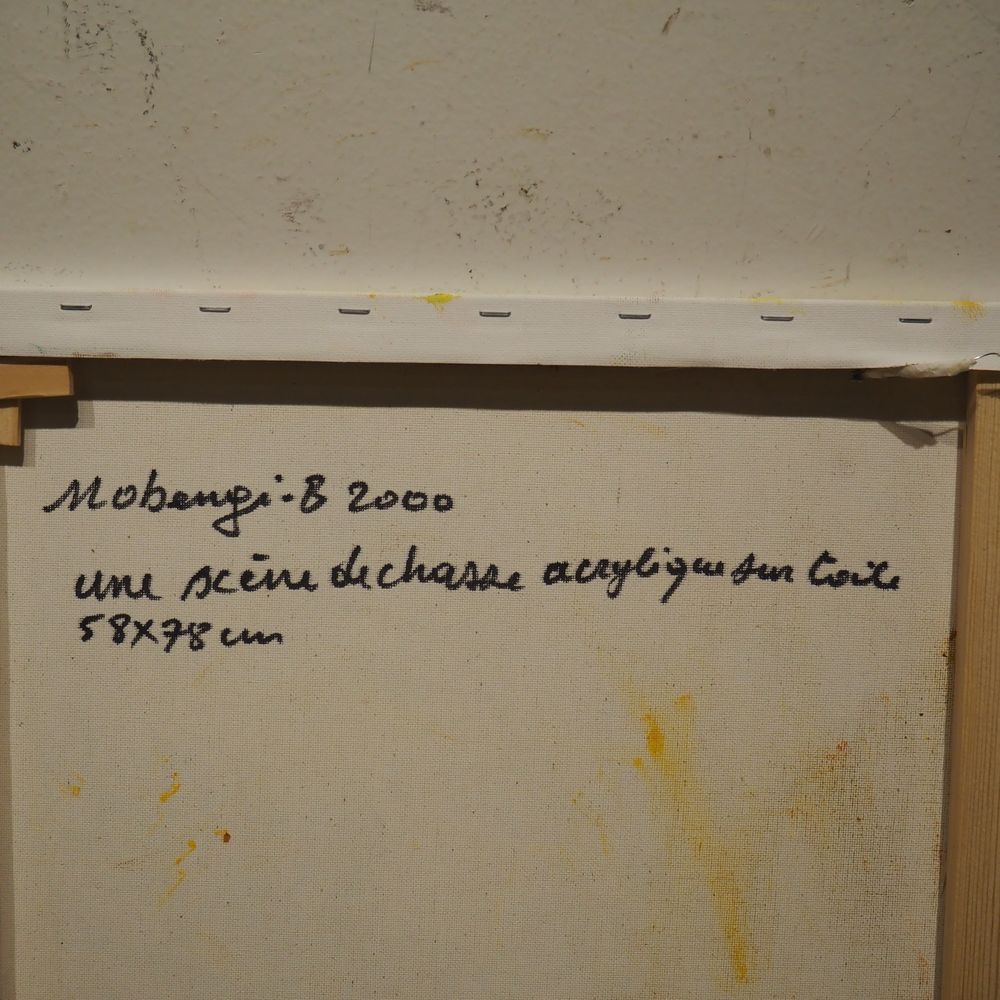 Mobengi-B 2000
une scène de chasse acrylique sur toile
58X78 cm